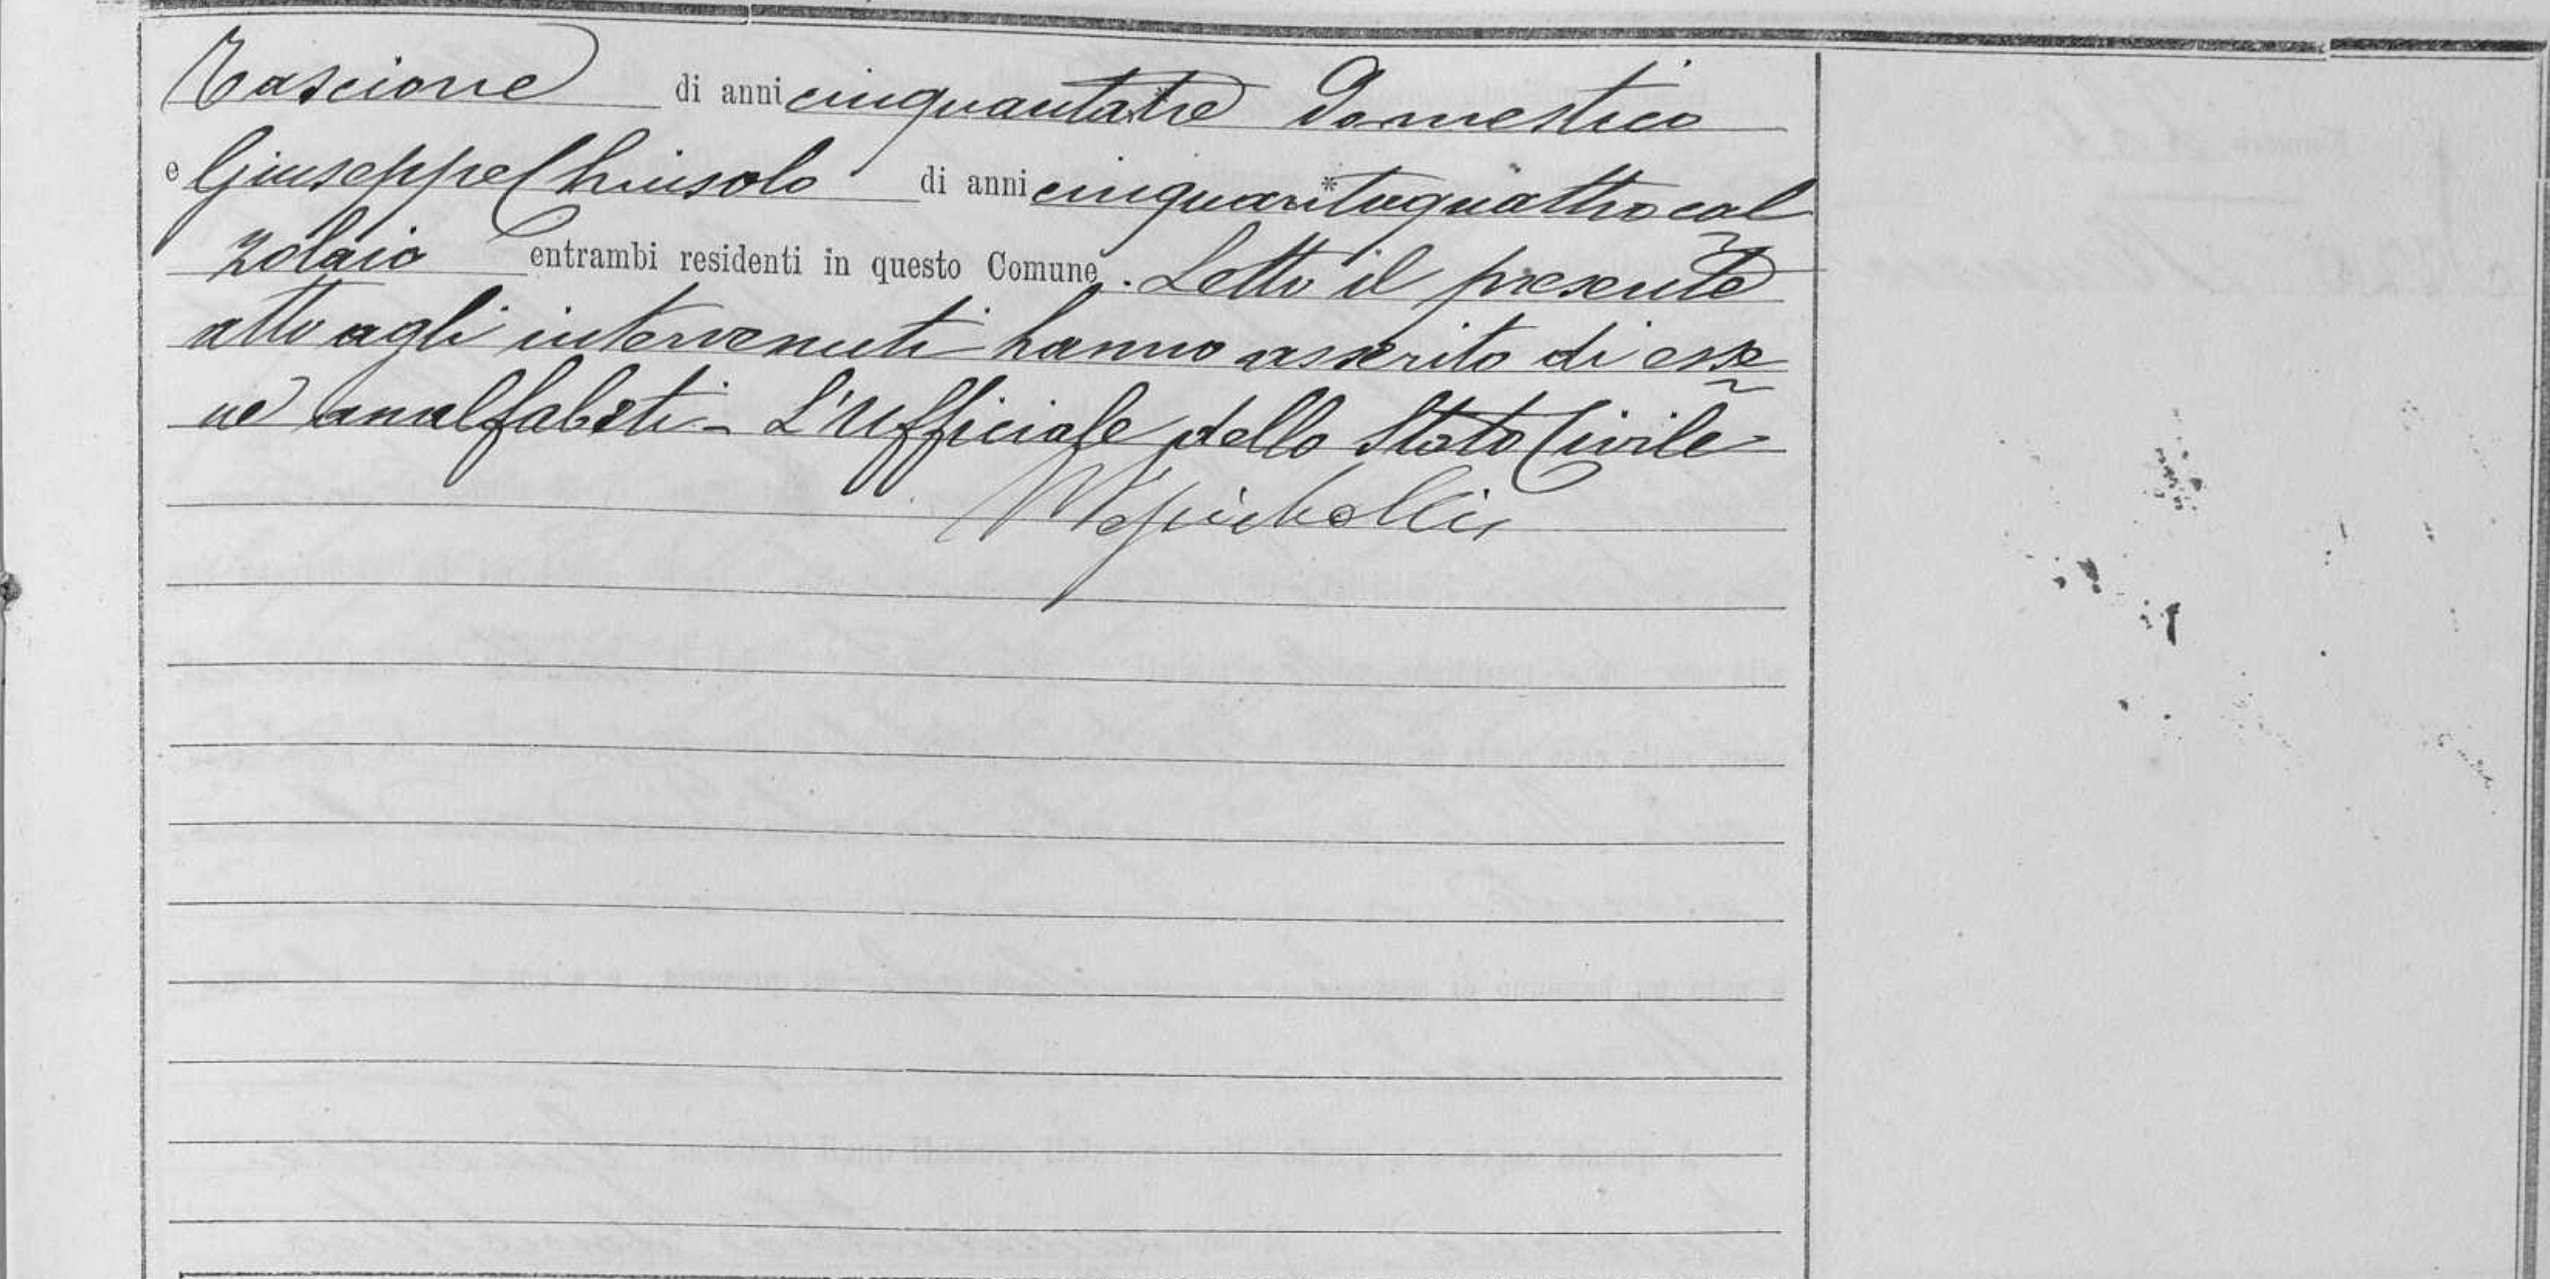 Tascione di anni cinquantatre Domestico
e Giuseppe Chiusolo di anni cinquantaquattro cal
zolaio entrambi residenti in questo Comune. Letto il presente
atto agli intervenuti hanno asserito di esse
re analfabeti - L'Ufficiale dello Stato Civile